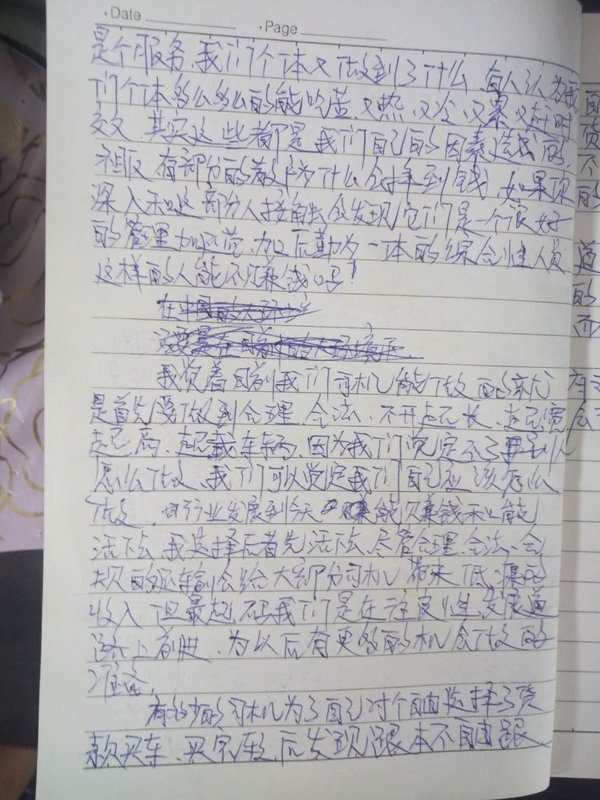 ·Date
·Page
是个服务,我们个体又做到了什么,有人认为我
们个体多么多么的能吃苦,又热,又冷,又累,又赶时
效,其实这些都是我们自己的因素造成的,
有部分的为什么会挣到钱,如果硬
深入和这部分人接触会发现,它们是一个很好
的管理、司机,加后勤为一体的综合性人员
这样的人能不赚钱吗?
我觉着目前我们司机能做的
是首先要做到合理、合法、不开超长、超宽
超高、超载车辆,因为我们决定不了别人
怎么做,我们可以决定我们自己应该怎么
做,行业发展到今天 能欠赚钱和能
活下去,我选择后者先活下去,尽管合理、合法、合
规的运输会给大部分司机带来低的
收入,但最起码我们是在往良性发展道
路上前进,为以后有更多的机会做的
准备。
有多少的司机为了自己对个自由选择了贷
款买车,买完车后发现跟本不自由跟